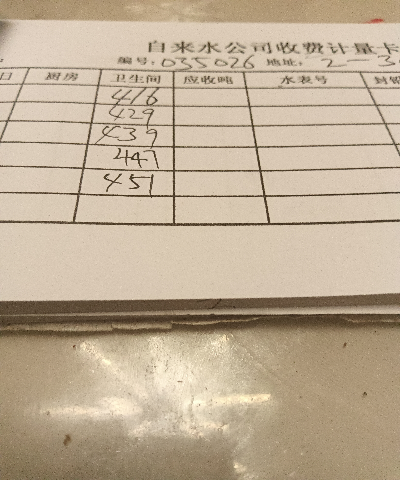 自来水公司收费计量卡
编号:035026 地址:2-3
日 厨房 卫生间 应收吨 水表号 封铅
416
429
439
447
451